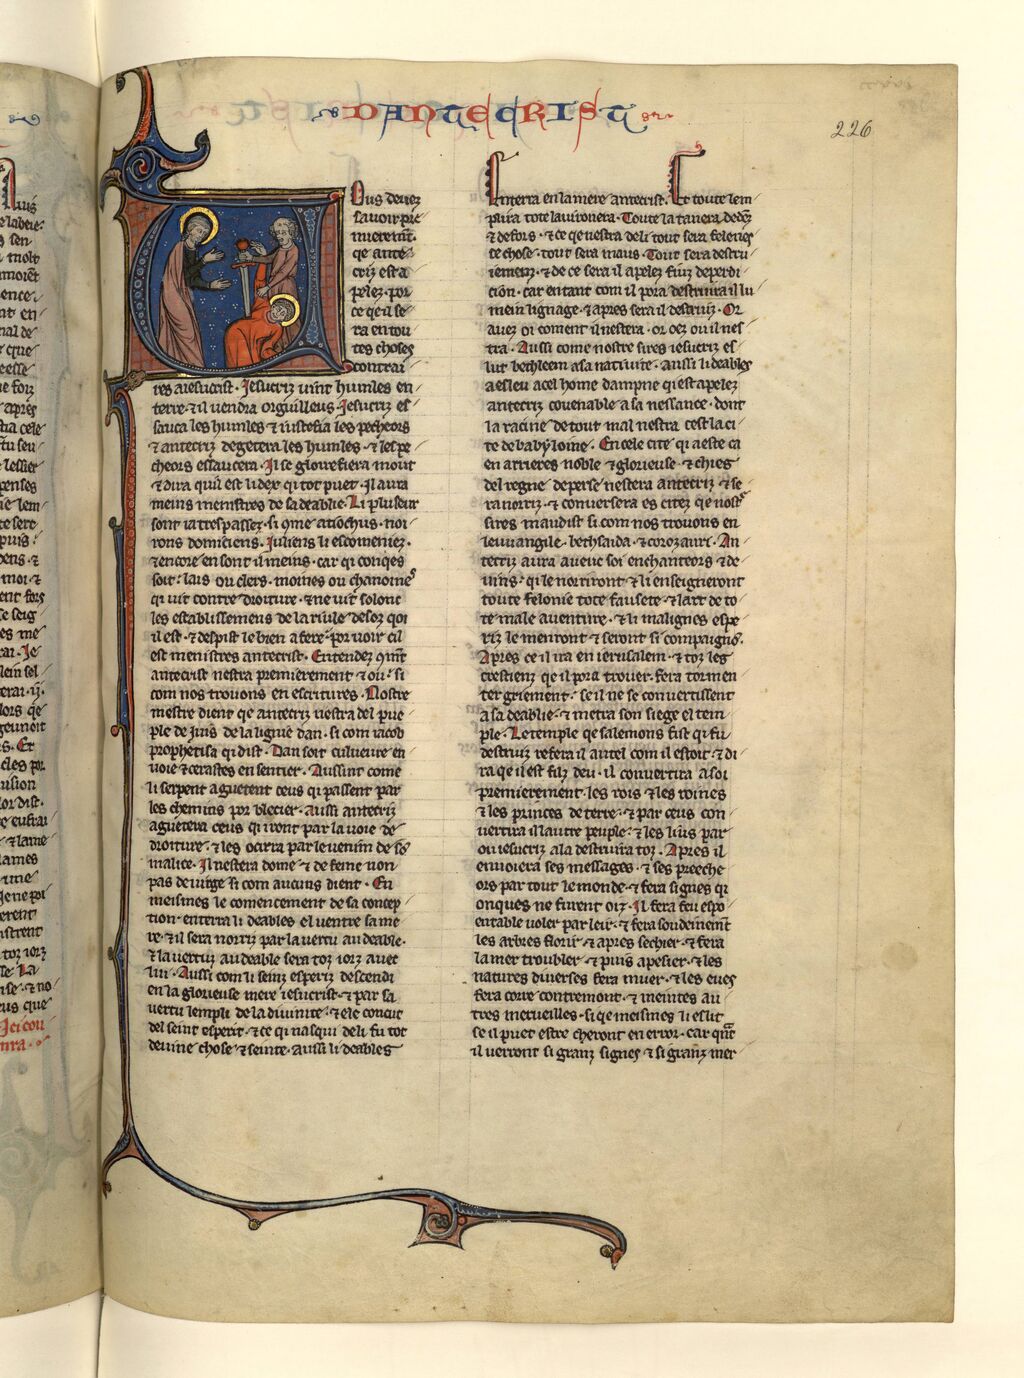 DANTECRIST
226
Vous devez
savoir pre
mierement
qe ante
criz est a
pelez por
ce qe il se
ra en tou
tes choses
contrai
res a iesucrist. Jesucriz vint humles en
terre. & il vendra orguilleus. Jesucriz es
sauca les humles & iustefia les pecheors
& antecriz degetera les humles. & les pe
cheors essaucera. Il se glorefiera mout
& dira quil est li dex qi tot puet. Il aura
meins menistres de sa deablie. Li pluseur
sont ia trespassez. si come noi
rons domiciens. Juliens li escomeniez.
& encore en sont il meins. car qi conqes
soit. lais ou clers. moines ou chanoines
qi vit contre droiture. & ne vit solonc
les establissemens de la riule desoz qoi
il est. & despist le bien a fere. por voir cil
est menistres antecrist. Entendez
antecrist nestra premierement & ou. si
com nos trouons en escritures. Nostre
mestre dient qe antecriz nestra del pue
ple de juis de la ligne dan. si com iacob
prophetisa qi dist. Dan soit culuevre en
voie & cerastes en sentier. Aussint come
li serpent aguetent ceus qi passent par
les chemins por blecier. aussi antecriz
aguetera ceus qi iront par la voie de
droiture. & les ocirra par le venim de sa
malice. Il nestera dome & de feme non
pas de virge si com aucuns dient. En
meismes le comencement de sa concep
tion. enterra li deables el ventre sa me
re. & il sera norriz par la vertu au deable.
& la vertuz au deable sera toz iorz avec
lui. Aussi com li seinz esperiz descendi
en la glorieuse mere iesucrist. & par sa
vertu lempli de la divinite. & ele concut
del seint esperit. & ce qi nasqui de li fu tot
devine chose & seinte. aussi li deables
Enterra en la mere antecrist. Et toute lem
plira tote lavironera. Toute la tanera dedenz
& defors. & ce qe nestra de li tout sera felenes
te chose. tout sera maus. Tout sera destru
iemenz. & de ce sera il apelez fiuz de perdi
cion. car en tant com il pora destruira il lu
mein lignage. & apres sera il destruiz. Or
avez oi coment il nestera. or oez ou il nes
tra. Aussi come nostre sires iesucriz es
lut bethleem a sa nativite. aussi li deables
a esleu a cel home dampne qi est apelez
antecriz covenable a sa nessance. dont
la racine de tout mal nestra cest la ci
te de babyloine. En cele cite qi a este ca
en arrieres noble & glorieuse & chies
del regne de perse nestera antecriz & se
ra norriz. & conversera es citez qe nostre
sires maudist si com nos trouons en
leuvangile. bethsaida. & corozaim. An
tecriz aura avenc soi enchanteors & de
vins. qi le norriront & li enseigneront
toute felonie tote fausete & lart de to
te male aventure. & li malignes espe
riz le menront & seront si compaignon.
Apres ce il ira en ierusalem. & toz les
crestiens qe il pora trouer. fera tormen
ter griement. se il ne se convertissent
a sa deablie. & metra son siege el tem
ple. Le temple qe salemons fist qi fu
destruiz refera il autel com il estoit & di
ra qe il est fiuz deu. il convertira a soi
premierement les rois & les roines
& les princes de terre. & par ceus con
vertira il lautre peuple. & les lius par
ou iesucriz ala destruira toz. Apres il
envoiera ses messages. & ses preeche
ors par tout le monde. & fera signes qi
onques ne furent oiz. Il fera feu espo
entable voler par leir. & fera soudement
les arbres florir & apres sechier. & fera
la mer troubler & puis apesier. & les
natures diverses fera muer. & les eves
fera corre contremont. & meintes au
tres merveilles. si qe meismes li eslit
se il puet estre cherront en error. car quant
il verront si granz signes & si granz mer